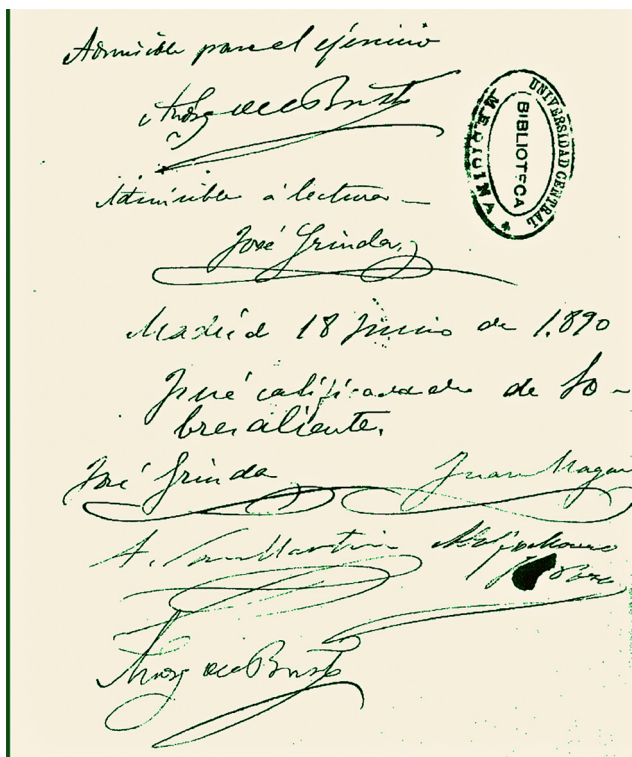 Admisible para el ejercicio
Andrés del Busto
UNIVERSIDAD CENTRAL
BIBLIOTECA
MEDICINA
Admisible á lectura
José Grinda
Madrid 18 Junio de 1.890
Fué calificada de So-
bresaliente.
José Grinda Juan Magaz
A. San Martin
Andrés del Busto